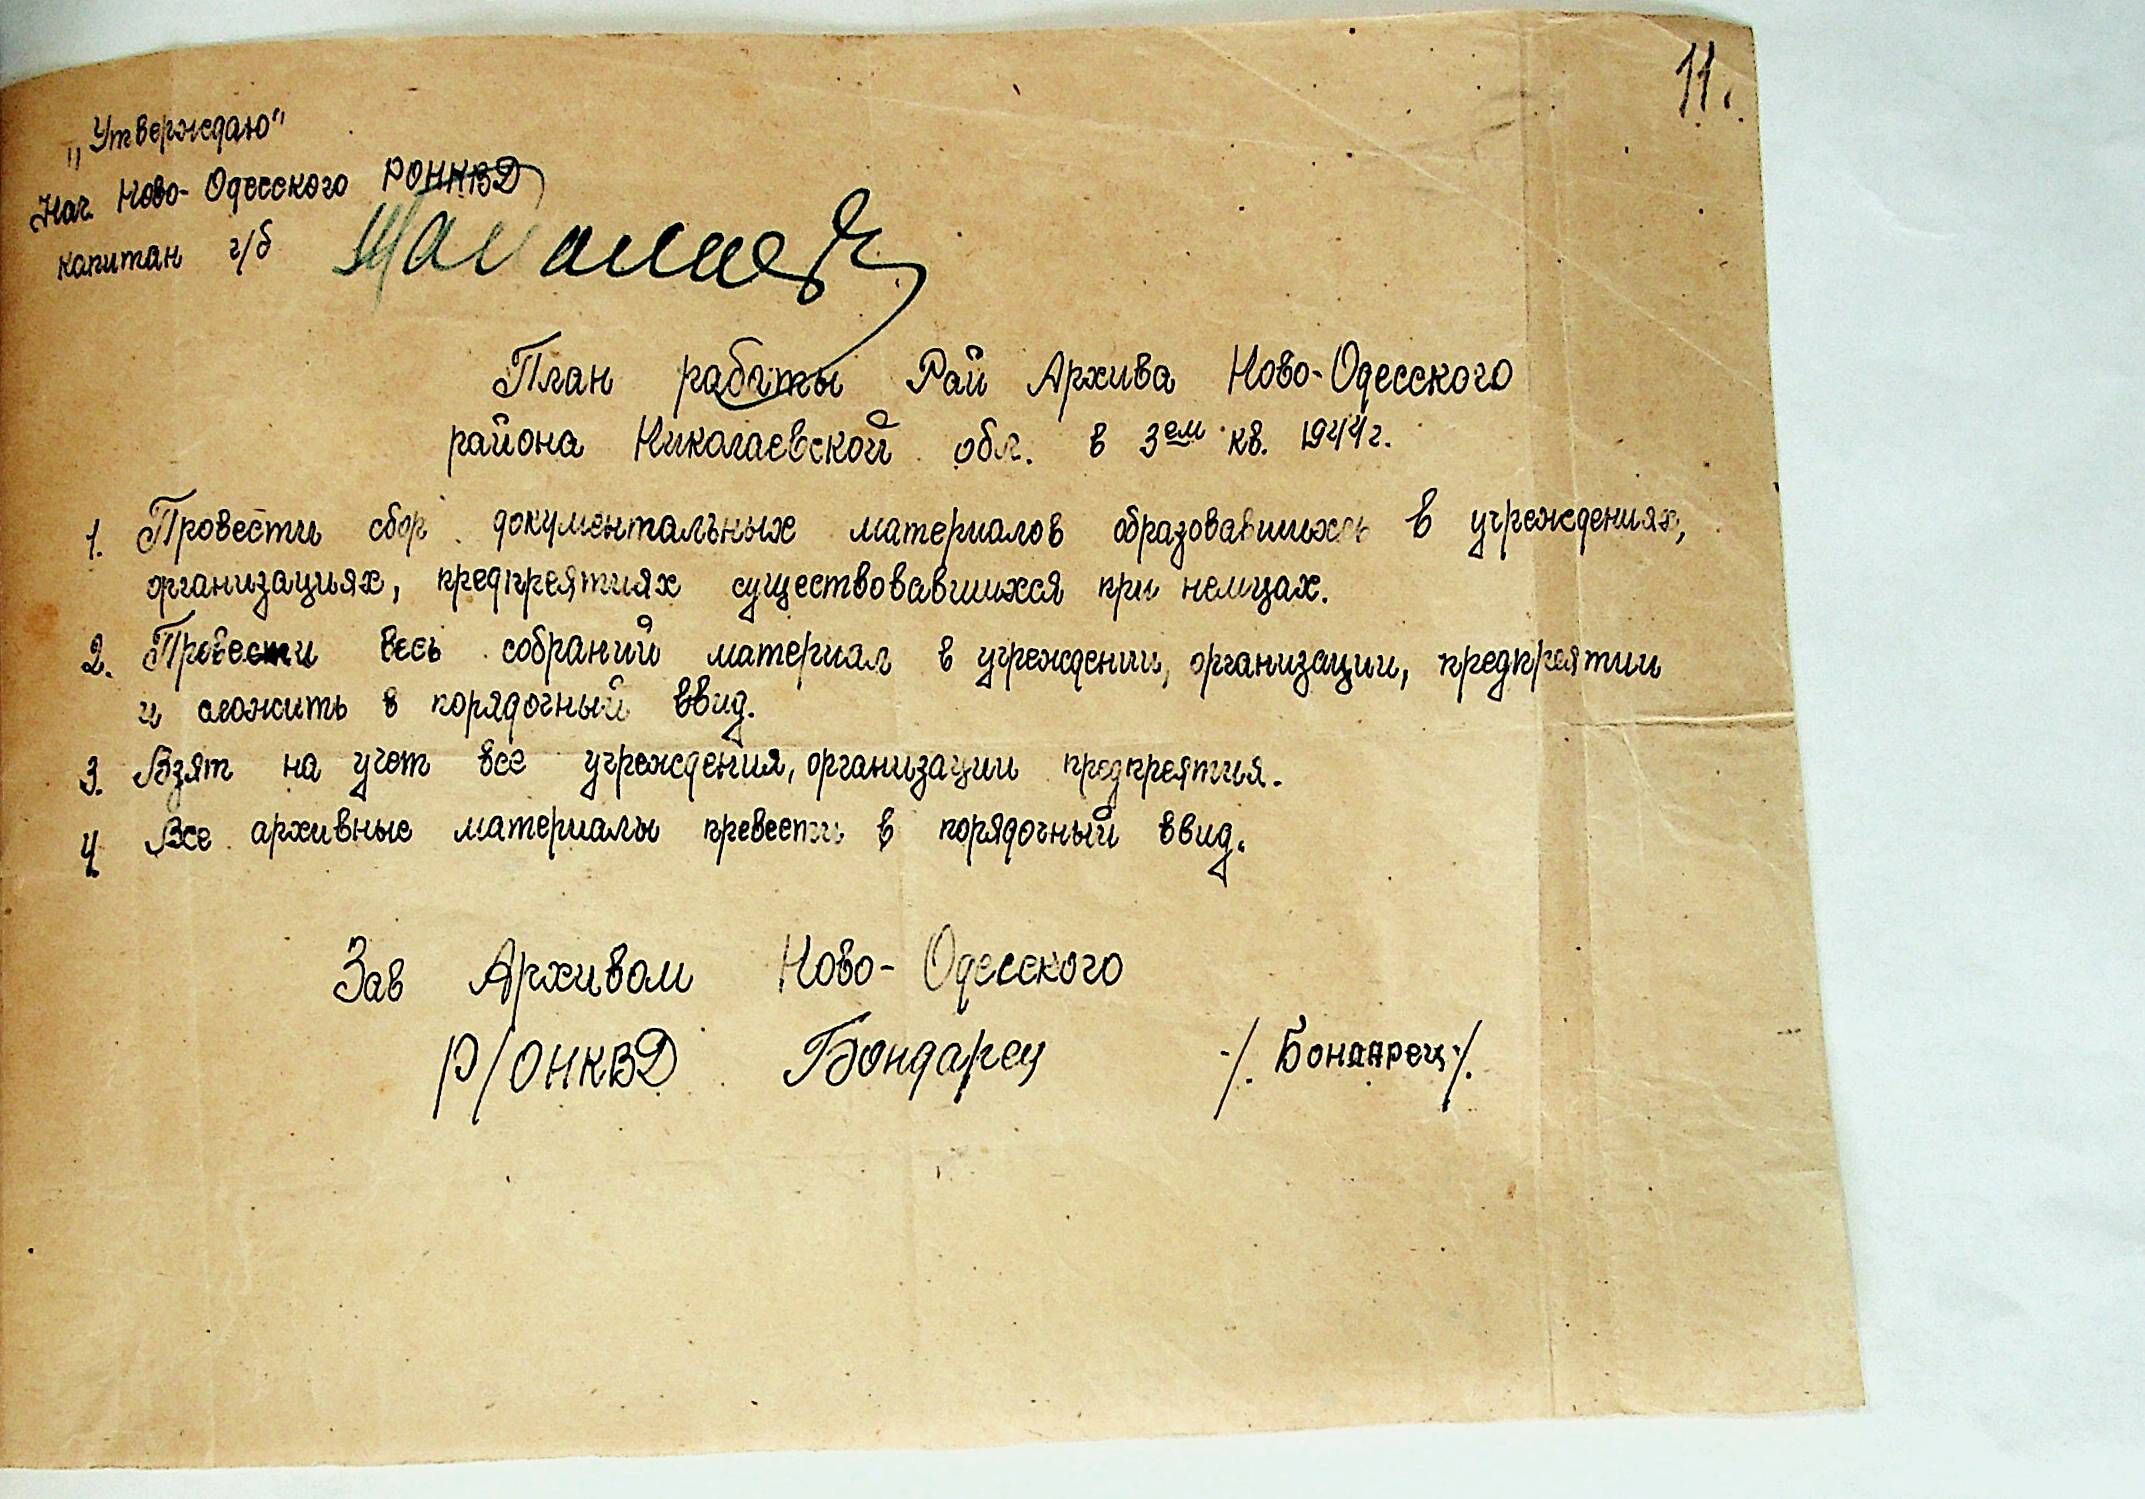 11.
„Утверждаю"
Нач. Ново-Одесского РОНКВД
капитан г/б
План работы Рай Архива Ново-Одесского
района Николаевской обл. в 3ем кв. 1944г.
1. Провести сбор документальных материалов образовавшихсь в учреждениях,
организациях, предприятиях существовавшихся при немцах.
2. Провести весь собраний материал в учреждении, организации, предприятии
и сложить в порядочный ввид.
3. Взят на учет все учреждения, организации предприятия.
4 Все архивные материалы превести в порядочный ввид.
Зав Архивом Ново-Одесского
Р/ОНКВД Бондарец /. Бондарец /.